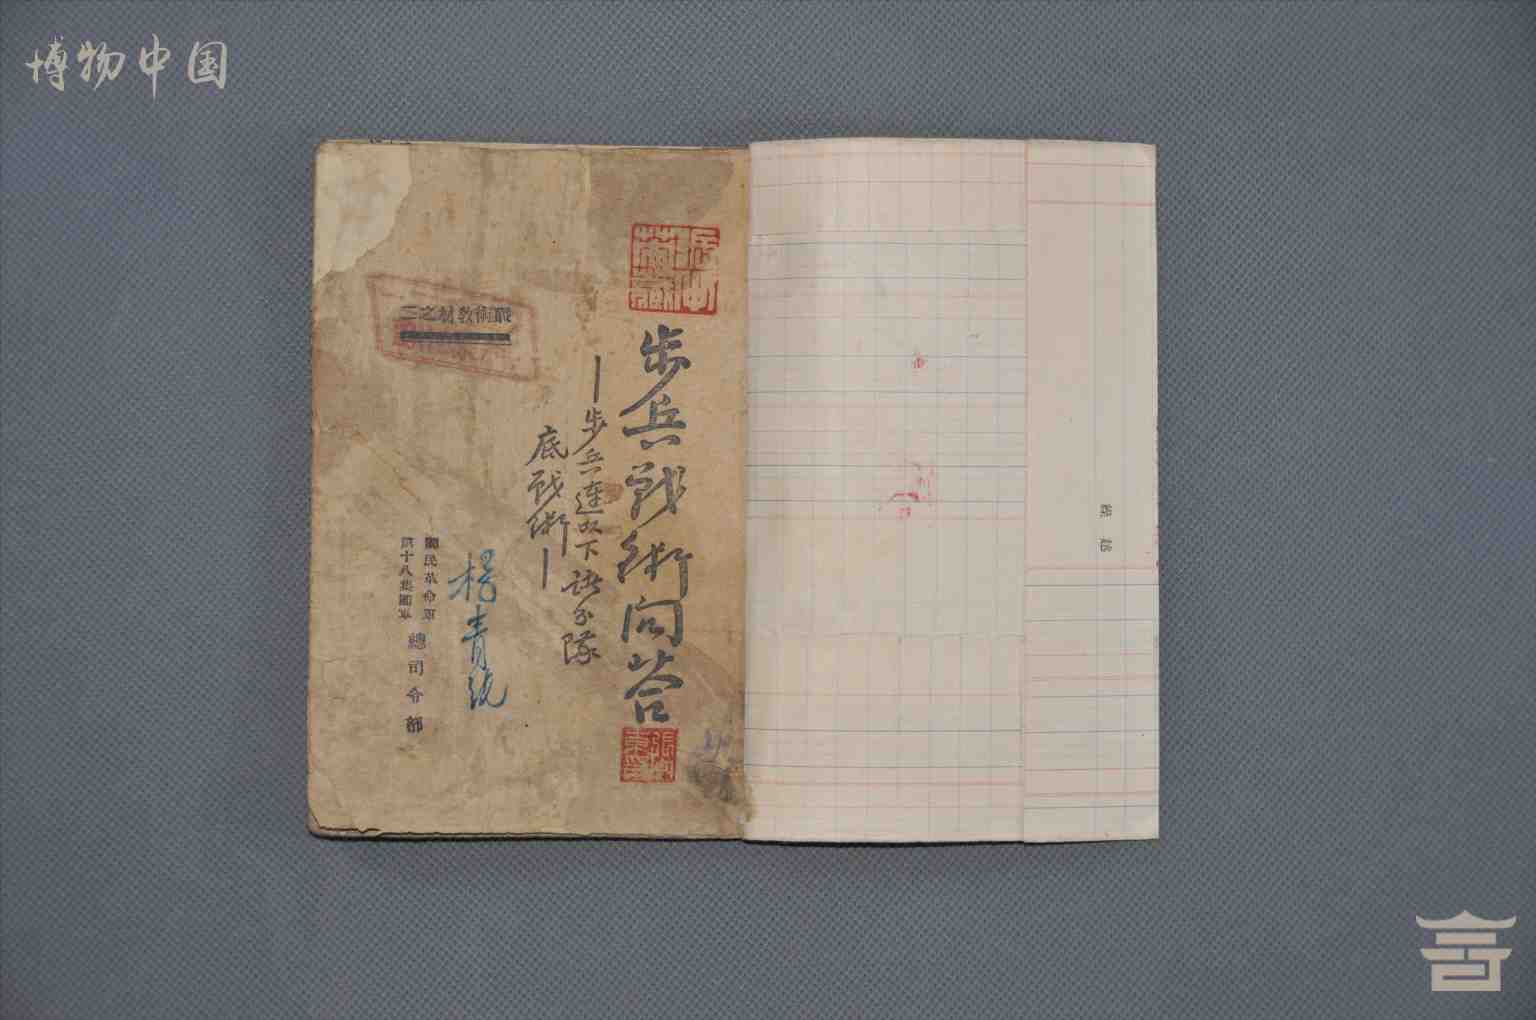 博物中国
步兵戰術问荅
—步兵連以下諸分隊
底戰術—
戰術教材之二
楊青
國民革命軍
第十八集團軍
總司令部
張
東